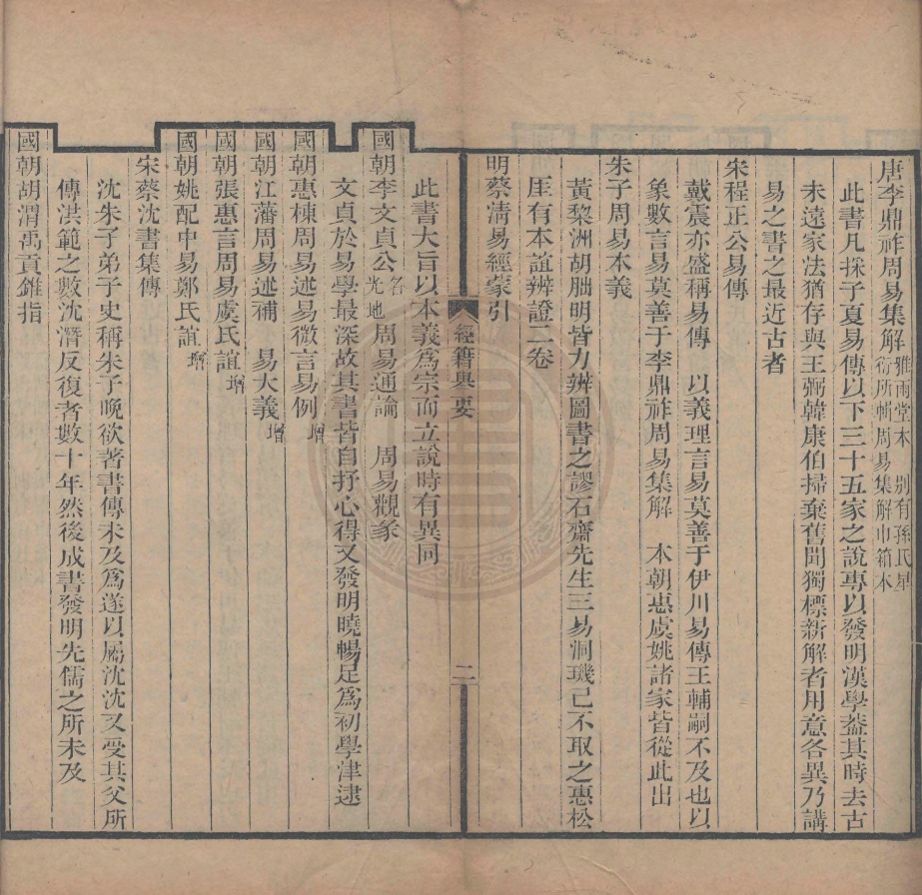 唐李鼎祚周易集解雅雨堂本 別有孫氏星衍所輯周易集解巾箱本
此書凡採子夏易傳以下三十五家之說專以發明漢學葢其時去古
未遠家法猶存與王弼韓康伯掃棄舊聞獨標新解者用意各異乃講
易之書之最近古者
宋程正公易傳
戴震亦盛稱易傳 以義理言易莫善于伊川易傳王輔嗣不及也以
象數言易莫善于李鼎祚周易集解 本朝惠虞姚諸家皆從此出
朱子周易本義
黃黎洲胡朏明皆力辨圖書之謬石齋先生三易洞璣已不取之惠松
厓有本誼辨證二卷
明蔡淸易經蒙引
經籍舉要
二
此書大旨以本義爲宗而立說時有異同
國朝李文貞公名光地周易通論 周易觀彖
文貞於易學最深故其書皆自抒心得又發明曉暢足爲初學津逮
國朝惠棟周易述易微言易例增
國朝江藩周易述補 易大義增
國朝張惠言周易虞氏誼增
國朝姚配中易鄭氏誼增
宋蔡沈書集傳
沈朱子弟子史稱朱子晚欲著書傳未及爲遂以屬沈沈又受其父所
傳洪範之數沈潛反復者數十年然後成書發明先儒之所未及
國朝胡渭禹貢錐指